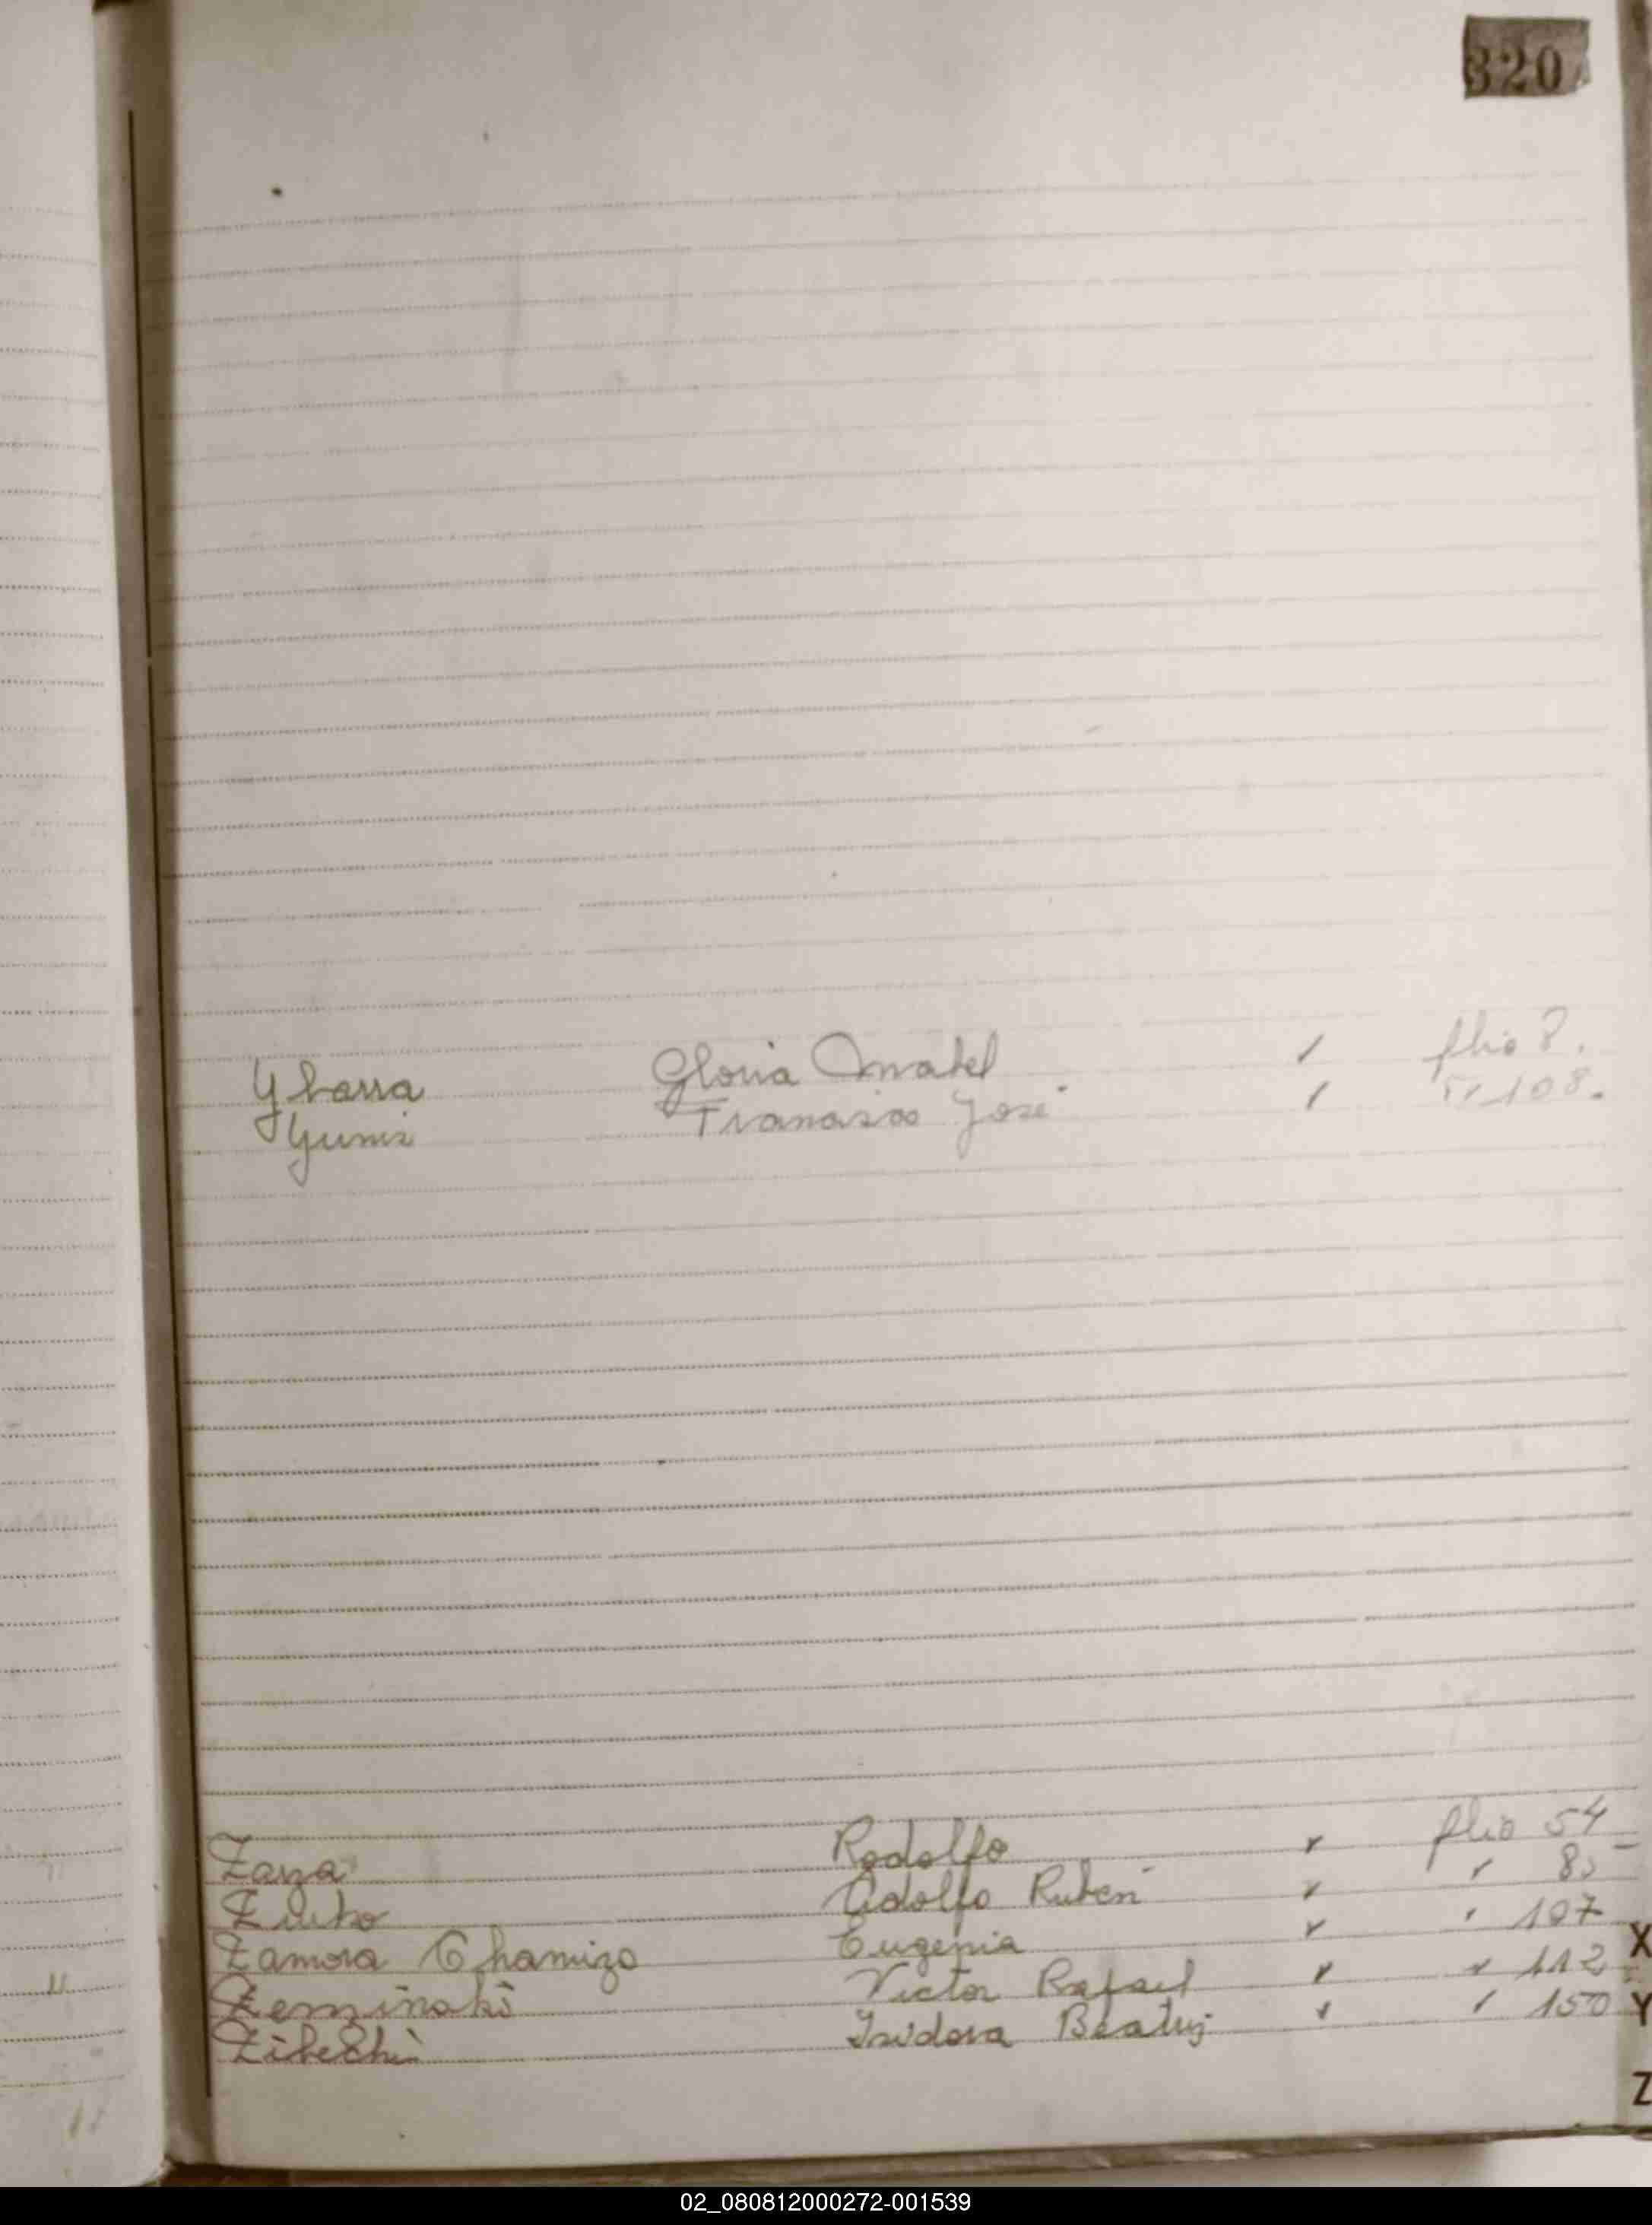 320
Ybarra Gloria Mabel folio 8.
Yunis Francisco José " 108.
Zarza Rodolfo folio 54
Adolfo Rubén "
Zamora Chamizo Eugenia " 107
Victor Rafael " 112
Zibechi Isidora Beatriz " 150
X
Y
Z
02_080812000272-001539